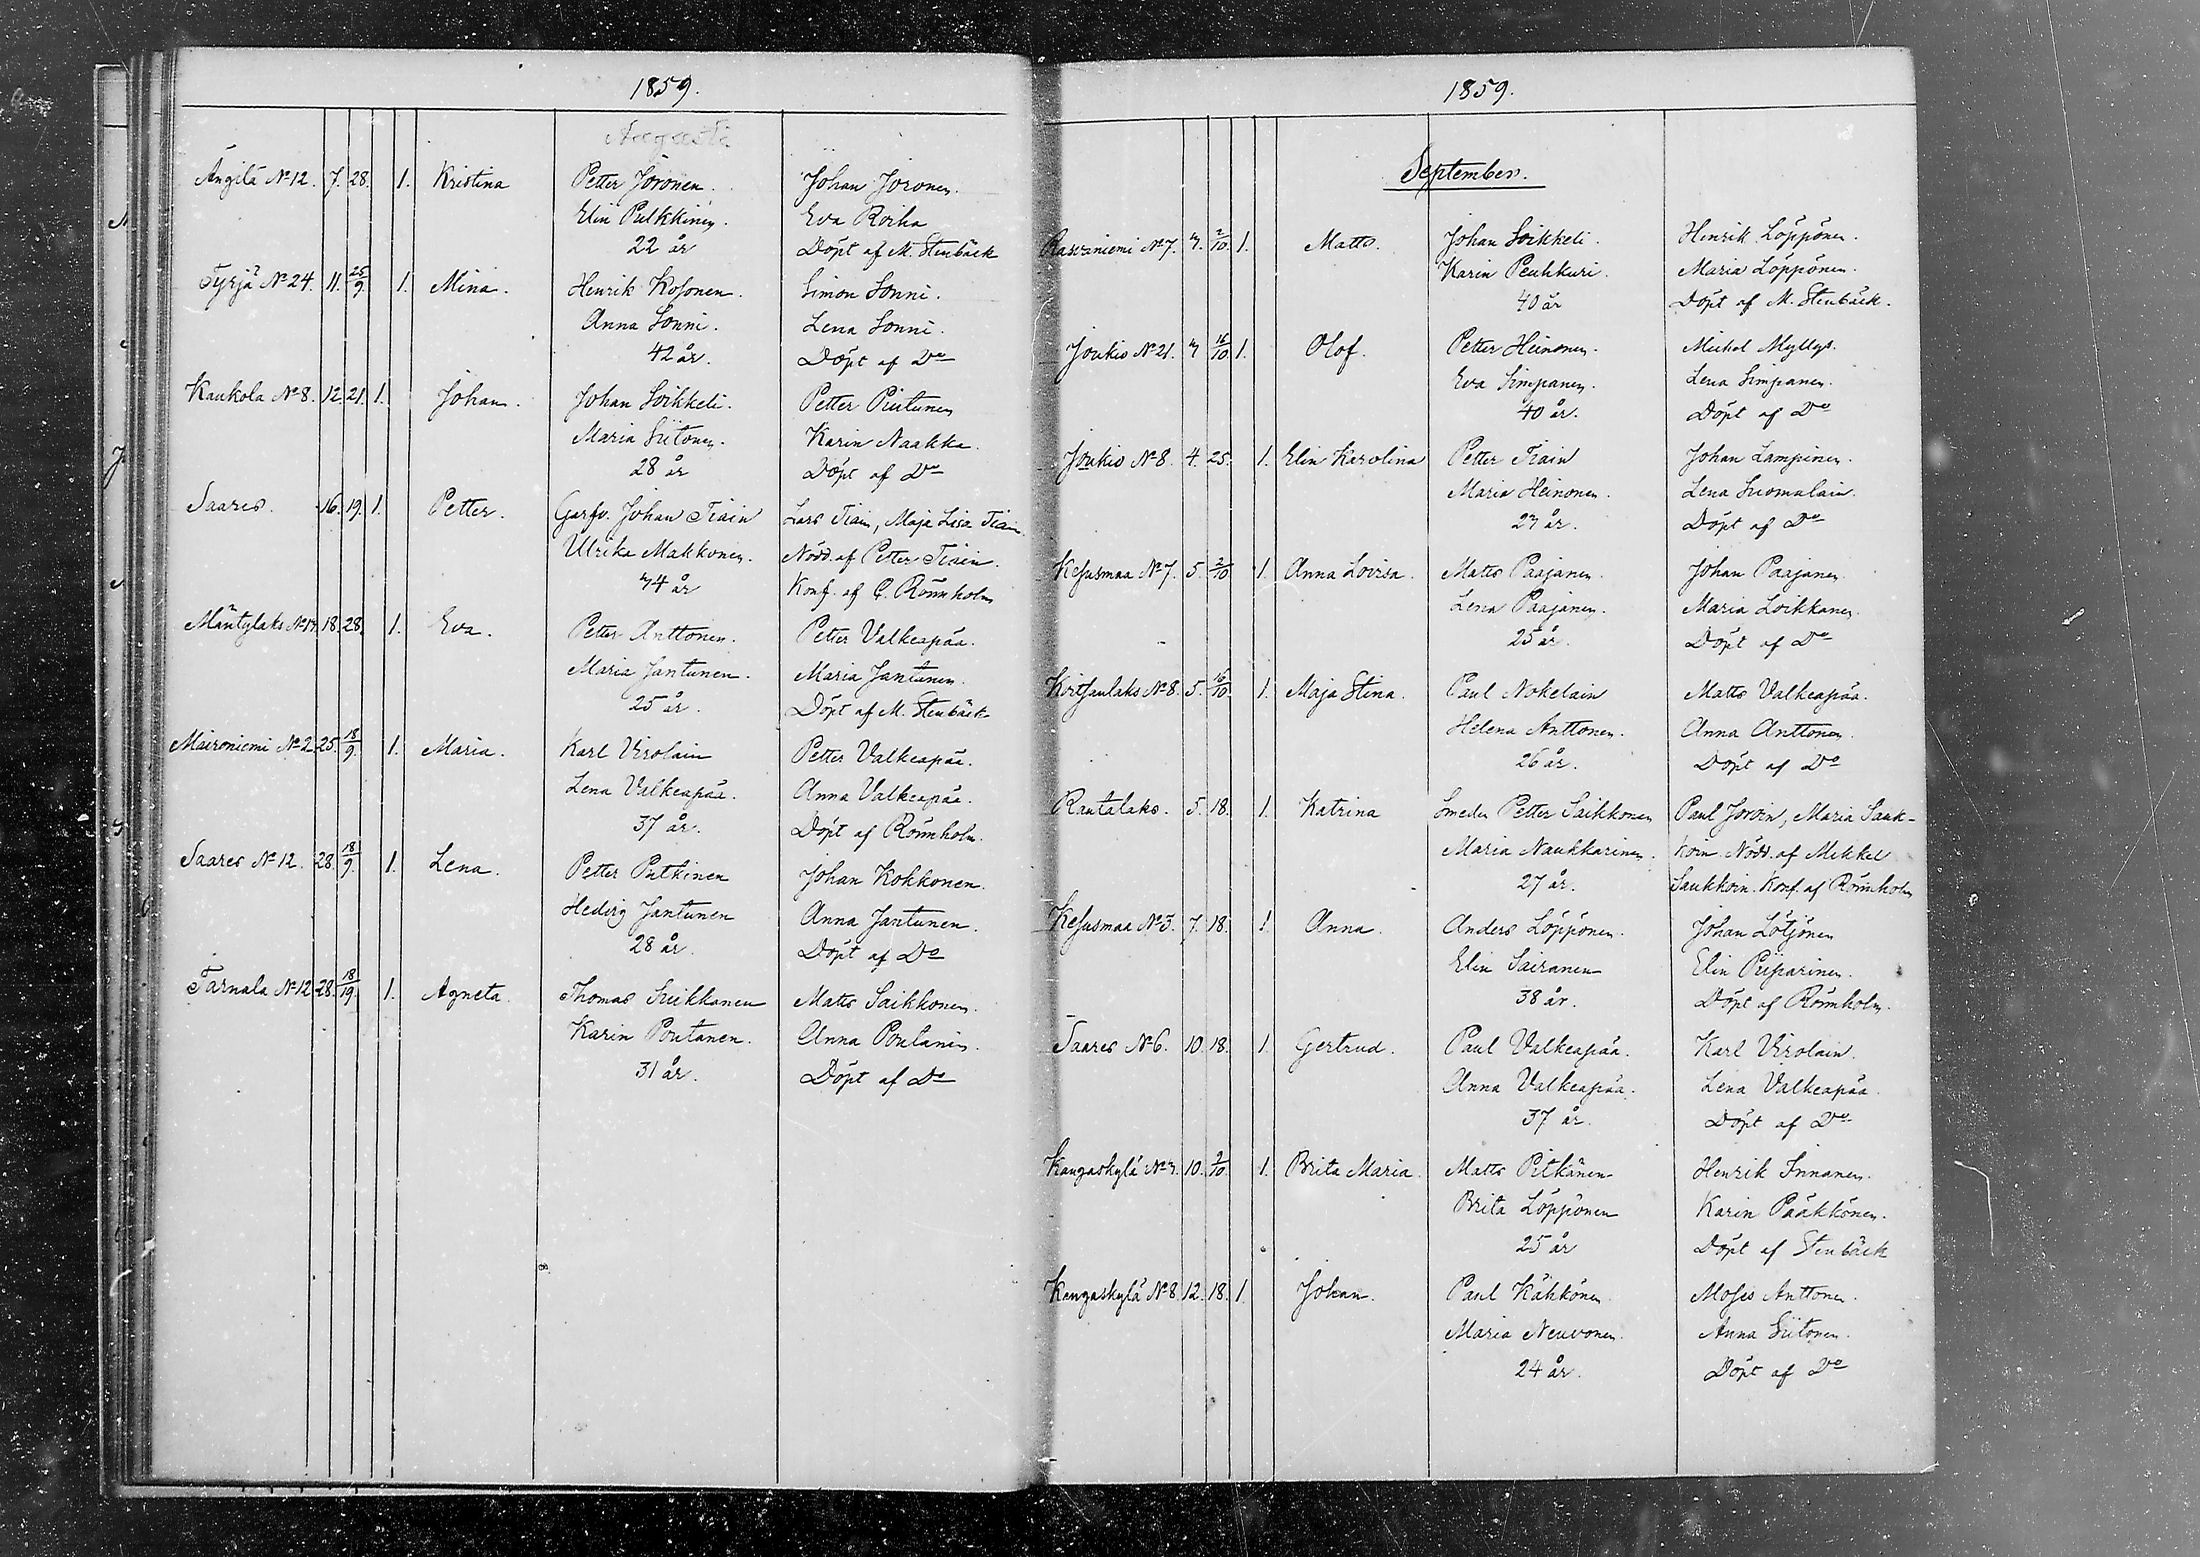 1859.
Augusti
Ängilä No 12. 7. 28. 1. Kristina Petter Joronen. Johan Joronen.
Elin Pulkkinen. Eva Roiha
22 år Döpt af M. Stenbäck
Tyrjä No 24. 11. 25/9 1. Mina. Henrik Kosonen. Simon Sonni.
Anna Sonni. Lena Sonni.
42 år. Döpt af Do
Kaukola No 8. 12. 21. 1. Johan. Johan Soikkeli. Petter Piutunen
Maria Siitonen. Karin Naakka.
28 år Döpt af Do
Saares. 16. 19. 1. Petter. Garfv. Johan Tiain Lars Tiain, Maja Lisa Tiain
Ulrika Makkonen. Nödd. af Petter Tiain.
44 år Konf. af C. Rönnholm
Mäntylaks 18. 28. 1. Eva. Petter Anttonen. Petter Valkeapää.
Maria Jantunen. Maria Jantunen.
25 år. Döpt af M. Stenbäck
Maironiemi No 2. 25. 18/9 1. Maria. Karl Virolain Petter Valkeapää.
Lena Valkeapää. Anna Valkeapää.
37 år. Döpt af Rönnholm.
Saares No 12. 28. 18/9. 1. Lena. Petter Putkinen Johan Kokkonen.
Hedvig Jantunen Anna Jantunen.
28 år. Döpt af Do
Tarnala No 12 28. 18/19. 1. Agneta. Thomas Suikkanen Matts Saikkonen.
Karin Poutanen. Anna Poutanen.
31 år. Döpt af Do
1859.
September.
Rasvaniemi No 7. 3. 2/10. 1. Matts. Johan Soikkeli. Henrik Löppönen.
Karin Peuhkuri. Maria Löppönen.
40 år Döpt af M. Stenbäck.
Joukio No 21. 3 16/10. 1. Olof. Petter Heinonen. Mickel Myllys.
Eva Simpanen. Lena Simpanen.
40 år. Döpt af Do
Joukio No 8. 4. 25. 1. Elin Karolina Petter Tiain Johan Lampinen.
Maria Heinonen. Lena Suomalain.
23 år. Döpt af Do
Kesusmaa No 7. 5. 2/10 1. Anna Lovisa. Matts Paajanen. Johan Paajanen
Lena Paajanen. Maria Loikkanen.
25 år. Döpt af Do
Koitsanlaks No 8. 5. 16/10 1. Maja Stina. Paul Nokelain Matts Valkeapää.
Helena Anttonen. Anna Anttonen.
26 år. Döpt af Do
Rautalaks. 5. 18. 1. Katrina Smeden Petter Saikkonen Paul Jorvin, Maria Sauk-
Maria Naukkarinen. koin. Nödd. af Mikkel
27 år. Saukkoin. Konf. af Rönnholm
Kesusmaa No 3. 7. 18. 1. Anna. Anders Löppönen. Johan Lötjönen
Elin Sairanen Elin Piiparinen.
38 år. Döpt af Rönnholm.
Saares No 6. 10. 18. 1. Gertrud. Paul Valkeapää. Karl Virolain.
Anna Valkeapää. Lena Valkeapää.
37 år. Döpt af Do
Kangaskylä No 3. 10. 2/10 1. Brita Maria. Matts Pitkänen Henrik Innanen.
Brita Löppönen Karin Pääkkönen.
25 år Döpt af Stenbäck
Kangaskylä No 8. 12. 18. 1. Johan. Paul Kähkönen Moses Anttonen.
Maria Neuvonen. Anna Siitonen.
24 år. Döpt af Do